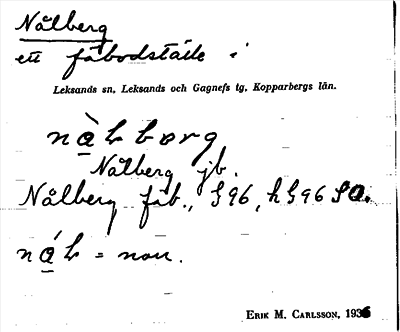 Nålberg
ett fäbodställe i
Leksands sn, Leksands och Gagnefs tg, Kopparbergs län.
nàLbærg
Nålberg jb.
Nålberg fäb., S96, h S96 SO.
náL = nou.
ERIK M. CARLSSON, 1936